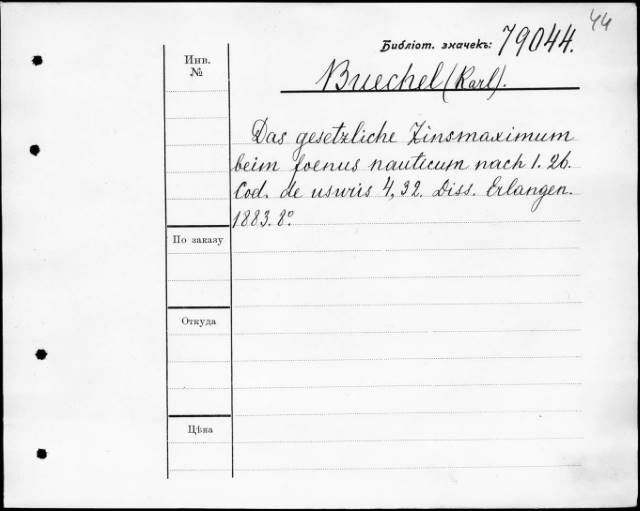 44
Библіот. значекъ: 79044.
Инв.
№
Buechel (Karl).
Das gesetzliche Zinsmaximum
beim foenus nauticum nach l. 26.
Cod. de usuris 4, 32. Diss. Erlangen.
1883. 8º
По заказу
Откуда
Цѣна